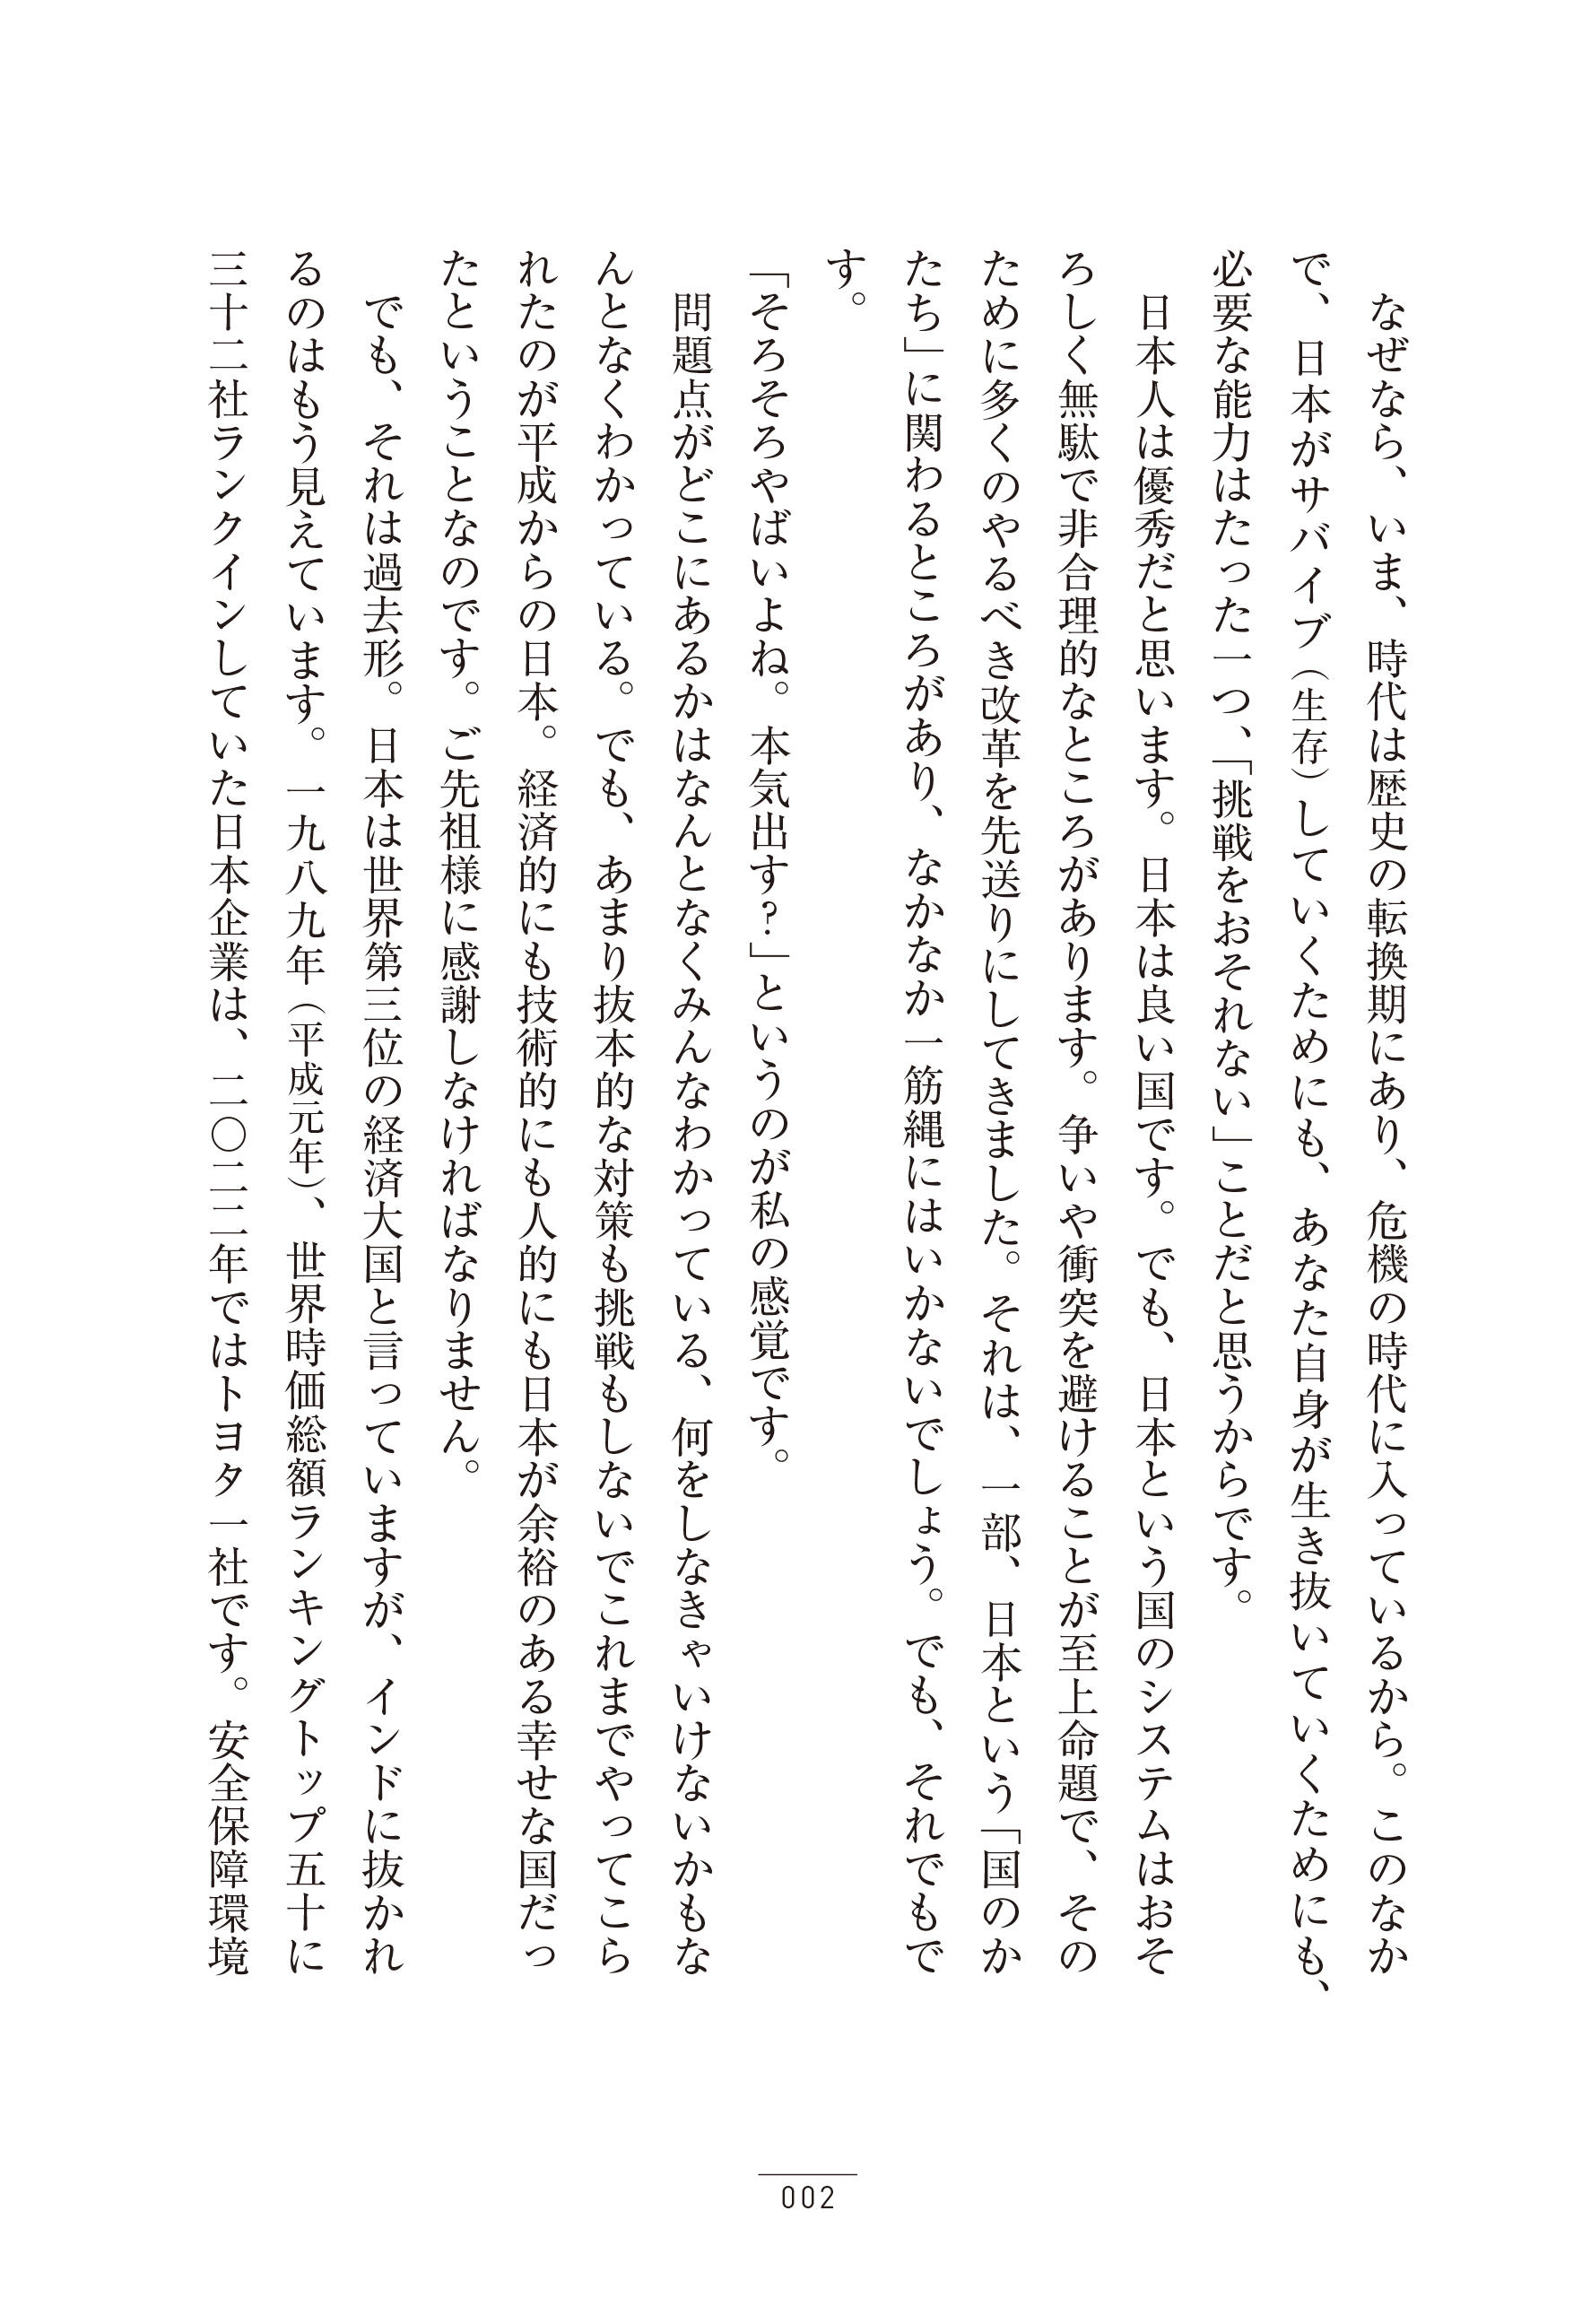 なぜなら、いま、時代は歴史の転換期にあり、危機の時代に入っているから。このなか
で、日本がサバイブ（生存）していくためにも、あなた自身が生き抜いていくためにも、
必要な能力はたった一つ、「挑戦をおそれない」ことだと思うからです。
日本人は優秀だと思います。日本は良い国です。でも、日本という国のシステムはおそ
ろしく無駄で非合理的なところがあります。争いや衝突を避けることが至上命題で、その
ために多くのやるべき改革を先送りにしてきました。それは、一部、日本という「国のか
たち」に関わるところがあり、なかなか一筋縄にはいかないでしょう。でも、それでもで
す。
「そろそろやばいよね。本気出す？」というのが私の感覚です。
問題点がどこにあるかはなんとなくみんなわかっている、何をしなきゃいけないかもな
んとなくわかっている。でも、あまり抜本的な対策も挑戦もしないでこれまでやってこら
れたのが平成からの日本。経済的にも技術的にも人的にも日本が余裕のある幸せな国だっ
たということなのです。ご先祖様に感謝しなければなりません。
でも、それは過去形。日本は世界第三位の経済大国と言っていますが、インドに抜かれ
るのはもう見えています。一九八九年（平成元年）、世界時価総額ランキングトップ五十に
三十二社ランクインしていた日本企業は、二〇二二年ではトヨタ一社です。安全保障環境
002